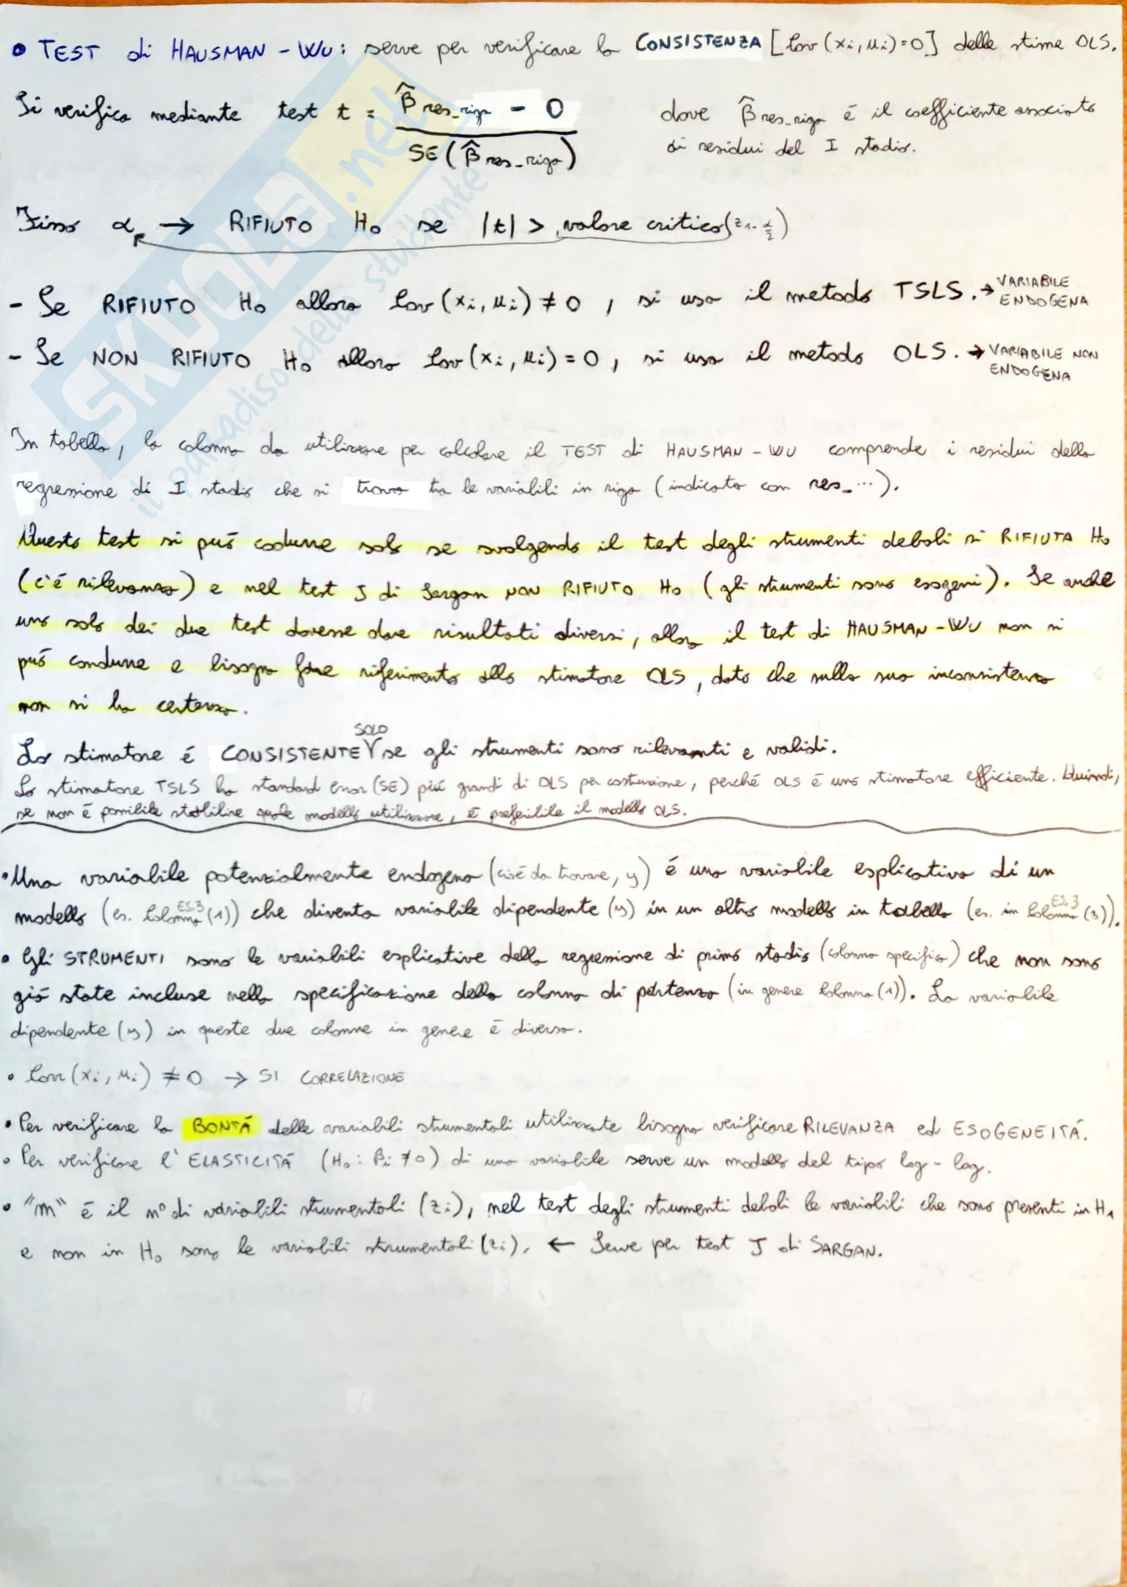 • TEST di HAUSMAN - WU: serve per verificare la CONSISTENZA [Cov(xi, ui)=0] delle stime OLS.
Si verifica mediante test t = β̂ res_riga - 0 / SE(β̂ res_riga) dove β̂ res_riga é il coefficiente associato
ai residui del I stadio.
Fisso α → RIFIUTO H0 se |t| > valore critico (z1-α/2)
- Se RIFIUTO H0 allora Cov(xi, ui) ≠ 0, si usa il metodo TSLS. → VARIABILE ENDOGENA
- Se NON RIFIUTO H0 allora Cov(xi, ui) = 0, si usa il metodo OLS. → VARIABILE NON ENDOGENA
In tabella, la colonna da utilizzare per calcolare il TEST di HAUSMAN - WU comprende i residui della
regressione di I stadio che si trova tra le variabili in riga (indicato con res_...).
Questo test si puó condurre solo se svolgendo il test degli strumenti deboli si RIFIUTA H0
(c'é rilevanza) e nel test J di Sargan NON RIFIUTO H0 (gli strumenti sono esogeni). Se anche
uno solo dei due test dovesse dare risultati diversi, allora il test di HAUSMAN - WU non si
puó condurre e bisogna fare riferimento allo stimatore OLS, dato che sulla sua inconsistenza
non si ha certezza.
Lo stimatore é CONSISTENTE SOLO se gli strumenti sono rilevanti e validi.
Lo stimatore TSLS ha standard error (SE) piú grandi di OLS per costruzione, perché OLS é uno stimatore efficiente. Quindi,
se non é possibile stabilire quale modello utilizzare, é preferibile il modello OLS.
• Una variabile potenzialmente endogena (cioé da trovare, y) é una variabile esplicativa di un
modello (es. Colonna ES.3 (1)) che diventa variabile dipendente (y) in un altro modello in tabella (es. in Colonna ES.3 (3)).
• Gli STRUMENTI sono le variabili esplicative della regressione di primo stadio (colonna specifica) che non sono
giá state incluse nella specificazione della colonna di partenza (in genere Colonna (1)). La variabile
dipendente (y) in queste due colonne in genere é diversa.
• Corr(xi, ui) ≠ 0 → SI CORRELAZIONE
• Per verificare la BONTÁ delle variabili strumentali utilizzate bisogna verificare RILEVANZA ed ESOGENEITÁ.
• Per verificare l'ELASTICITÁ (H0: βi ≠ 0) di una variabile serve un modello del tipo log - log.
• "m" é il n° di variabili strumentali (zi), nel test degli strumenti deboli le variabili che sono presenti in H1
e non in H0 sono le variabili strumentali (zi). ← Serve per test J di SARGAN.
SKUOLA.net
il paradiso dello studente